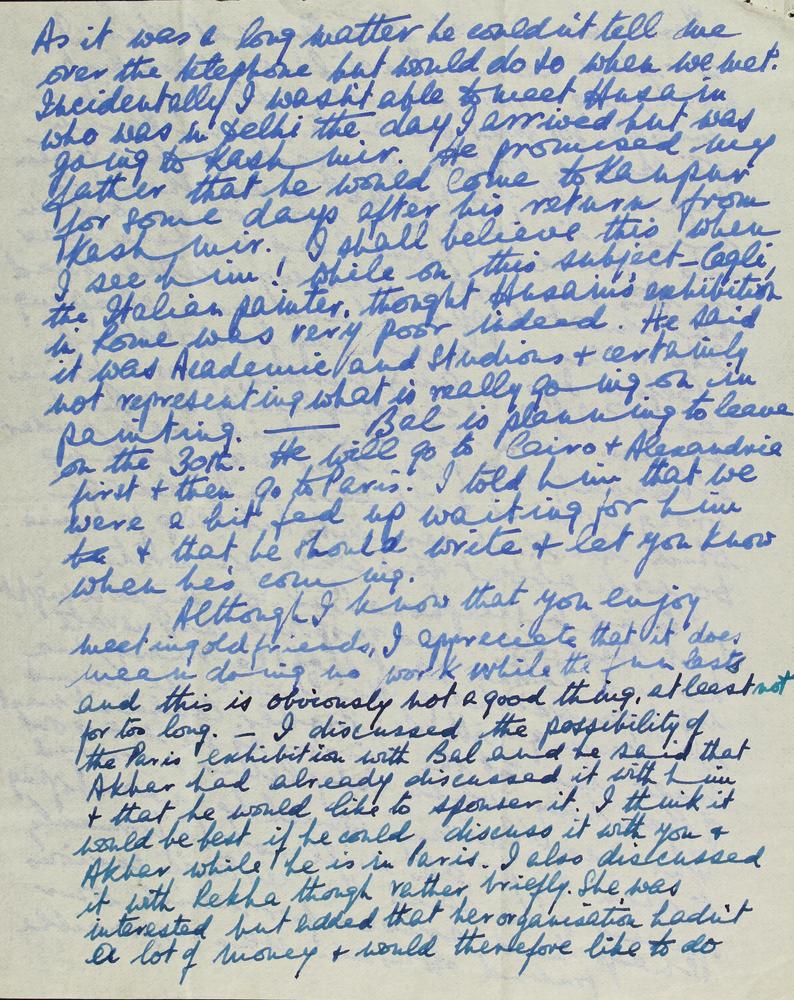 As it was a long matter he couldn't tell me
over the telephone but would do so when we met.
Incidentally I wasn't able to meet Husain
who was in Delhi the day I arrived but was
going to Kashmir. He promised my
father that he would come to Kanpur
for some days after his return from
Kashmir. I shall believe this when
I see him! While on this subject - Cagli,
the Italian painter, thought Husain's exhibition
in Rome was very poor indeed. He said
it was Academic and Studious + certainly
not representing what is really going on in
painting. — Bal is planning to leave
on the 30th. He will go to Cairo + Alexandria
first + then go to Paris. I told him that we
were a bit fed up waiting for him
+ that he should write + let you know
when he's coming.
Although I know that you enjoy
meeting old friends, I appreciate that it does
mean doing no work while the fun lasts
and this is obviously not a good thing, at least not
for too long. — I discussed the possibility of
the Paris exhibition with Bal and he said that
Akbar had already discussed it with him
+ that he would like to sponser it. I think it
would be best if he could discuss it with you +
Akbar while he is in Paris. I also discussed
it with Rekha though rather briefly. She was
interested but added that her organisation hadn't
a lot of money + would therefore like to do